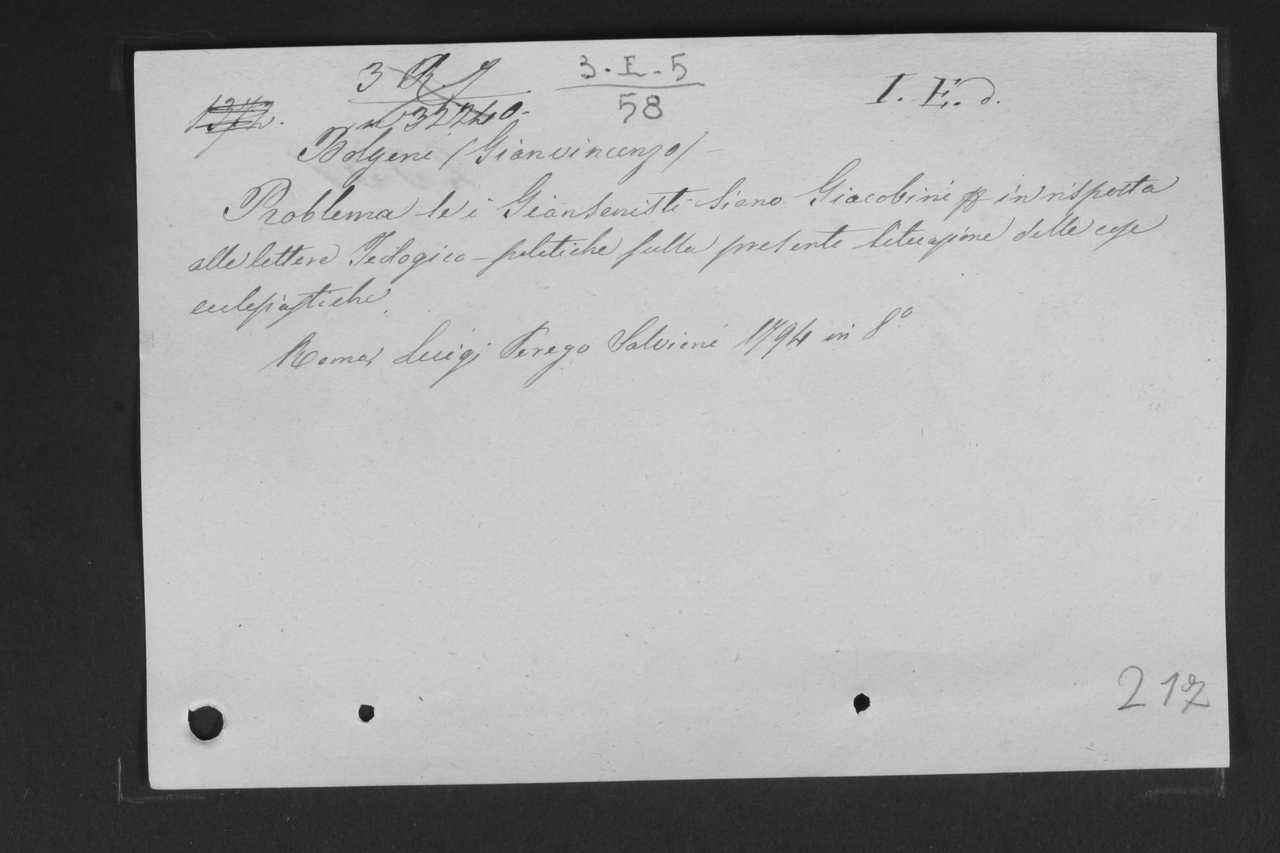 3-E-5
58
I. E. d.
32740.
Bolgeni (Gianvincenzo)
Problema se i Giansenisti siano Giacobini in risposta
alle lettere Teologico-politiche sulla presente situazione delle cose
ecclesiastiche.
Roma, Luigi Perego Salvioni 1794 in 8º
217